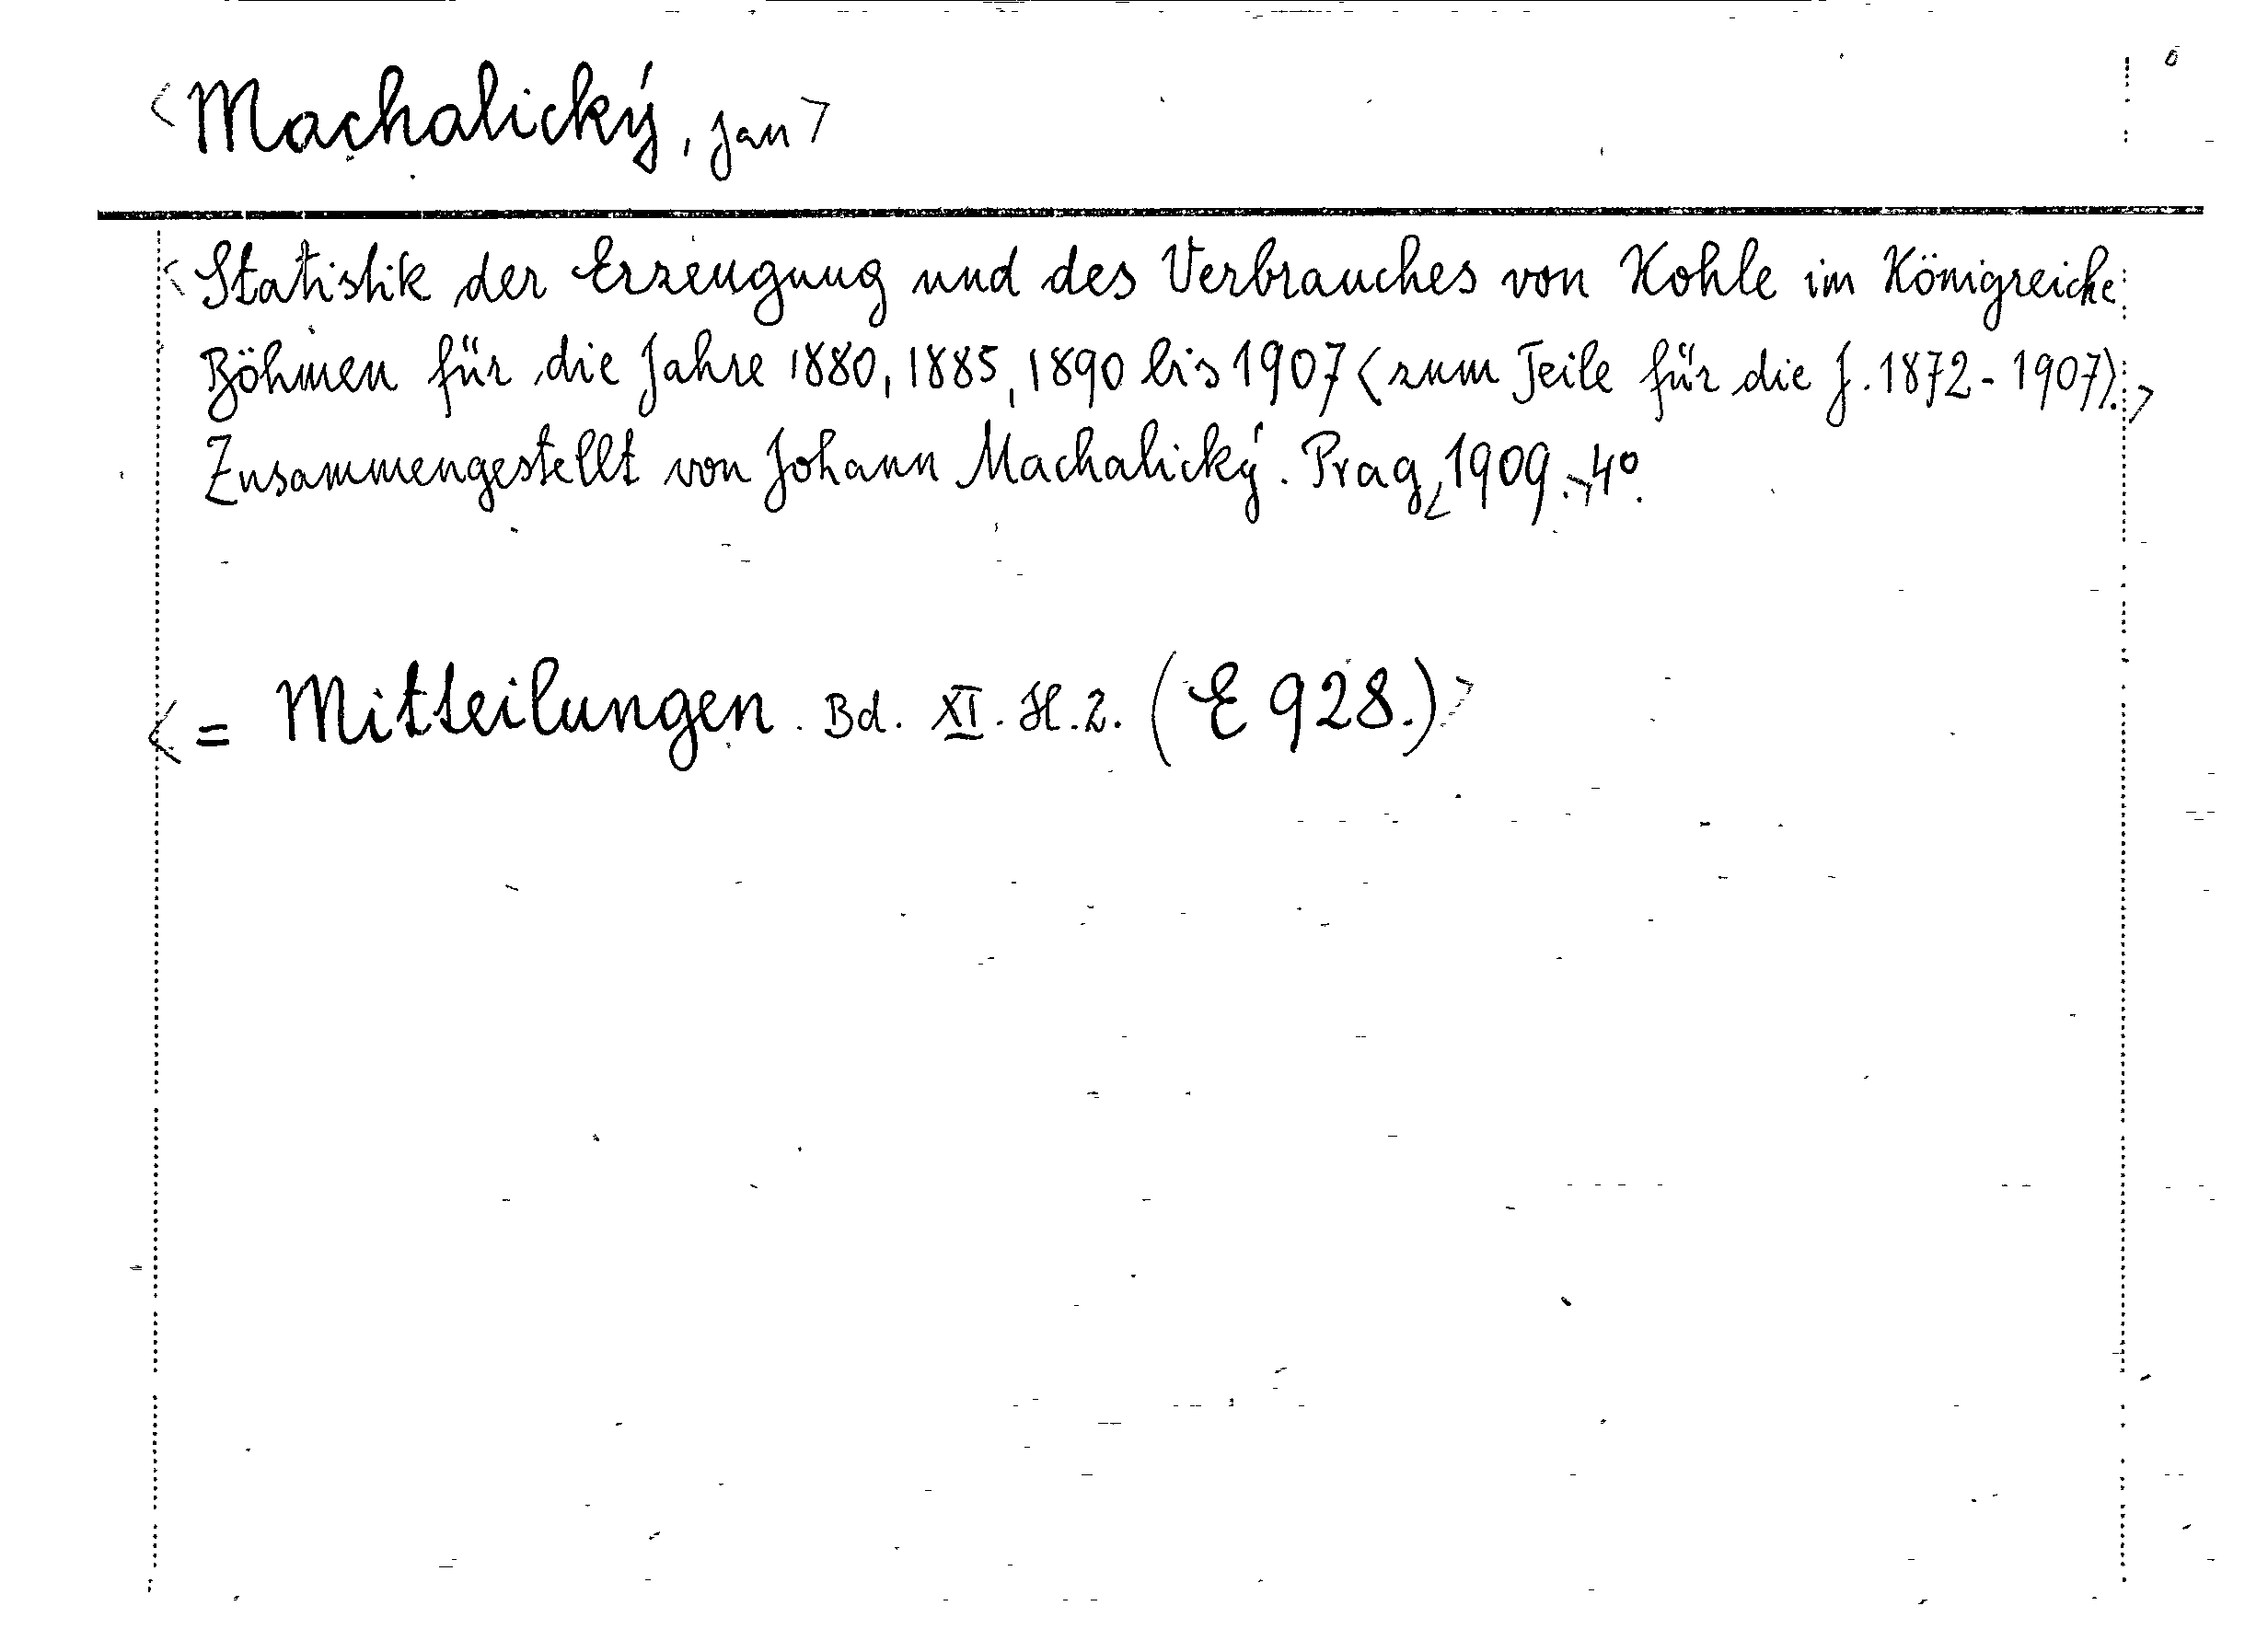 <Machalický, Jan>
<Statistik der Erzeugung und des Verbrauches von Kohle im Königreiche
Böhmen für die Jahre 1880, 1885, 1890 bis 1907 (zum Teile für die J. 1872-1907).>
Zusammengestellt von Johann Machalický. Prag,<1909.>4°.
<= Mitteilungen. Bd. XI. H. 2. (E 928.)>